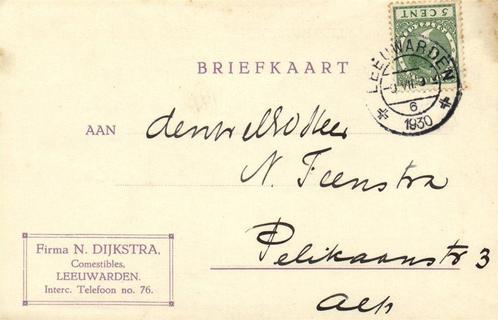 5 CENT
LEEUWARDEN
6
1930
BRIEFKAART
AAN den WelEd. Heer
N. Feenstra
Pelikaanstr 3
Alh
Firma N. DIJKSTRA,
Comestibles,
LEEUWARDEN.
Interc. Telefoon no. 76.